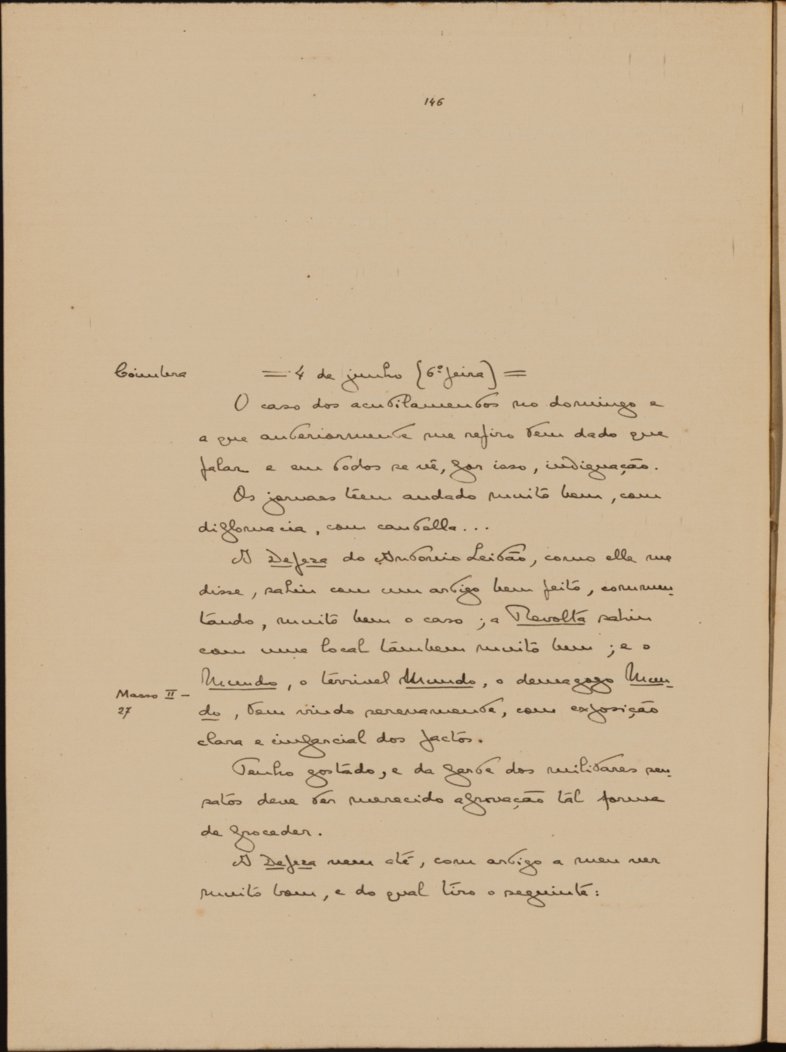 146
Coimbra = 4 de junho (6.ª feira) =
O caso dos acutilamentos no domingo e
a que anteriormente me refiro tem dado que
falar e em todos se vê, por isso, indignação.
Os jornaes téem andado muito bem, com
diplomacia, com cautella...
A Defeza do Antonio Leitão, como elle me
disse, sahiu com um artigo bem feito, commen-
tando, muito bem o caso; a Revolta sahiu
com uma local tambem muito bem; e o
Mundo, o terrivel Mundo, o demagogo Mun-
do, tem vindo serenamente, com exposição
Masso II - 27
clara e imparcial dos factos.
Tenho gostado, e da parte dos militares sen-
satos deve ter merecido aprovação tal forma
de proceder.
A Defeza vem até, com artigo a meu ver
muito bom, e do qual tiro o seguinte: